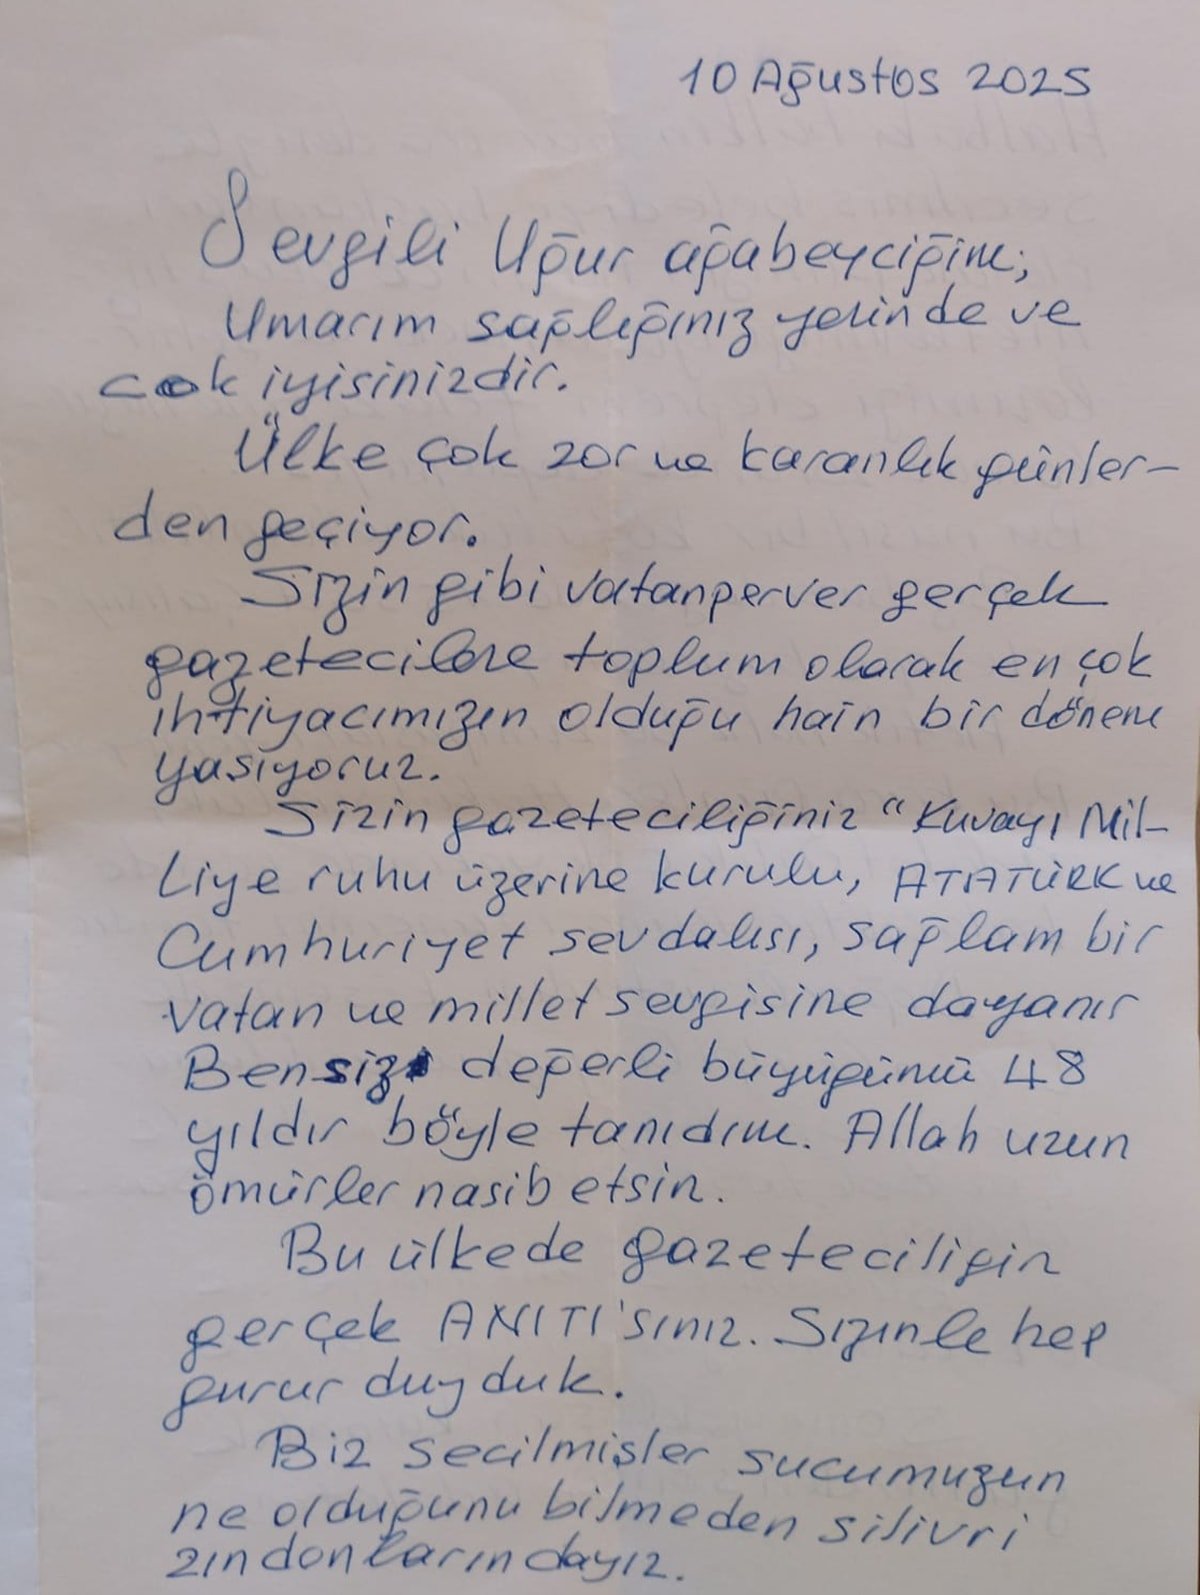 10 Ağustos 2025
Sevgili Uğur ağabeyciğim;
Umarım sağlığınız yerinde ve
cok iyisinizdir.
Ülke çok zor ve karanlık günler-
den geçiyor.
Sizin gibi vatanperver gerçek
gazetecilere toplum olarak en çok
ihtiyacımızın olduğu hain bir dönem
yasıyoruz.
Sizin gazeteciliğiniz "Kuvayı Mil-
liye ruhu üzerine kurulu, ATATÜRK ve
Cumhuriyet sevdalısı, sağlam bir
vatan ve millet sevgisine dayanır
Ben sizi değerli büyüğümü 48
yıldır böyle tanıdım. Allah uzun
ömürler nasib etsin.
Bu ülkede gazeteciliğin
gerçek ANITI'sınız. Sizinle hep
gurur duyduk.
Biz secilmişler sucumuzun
ne olduğunu bilmeden silivri
zındanlarındayız.